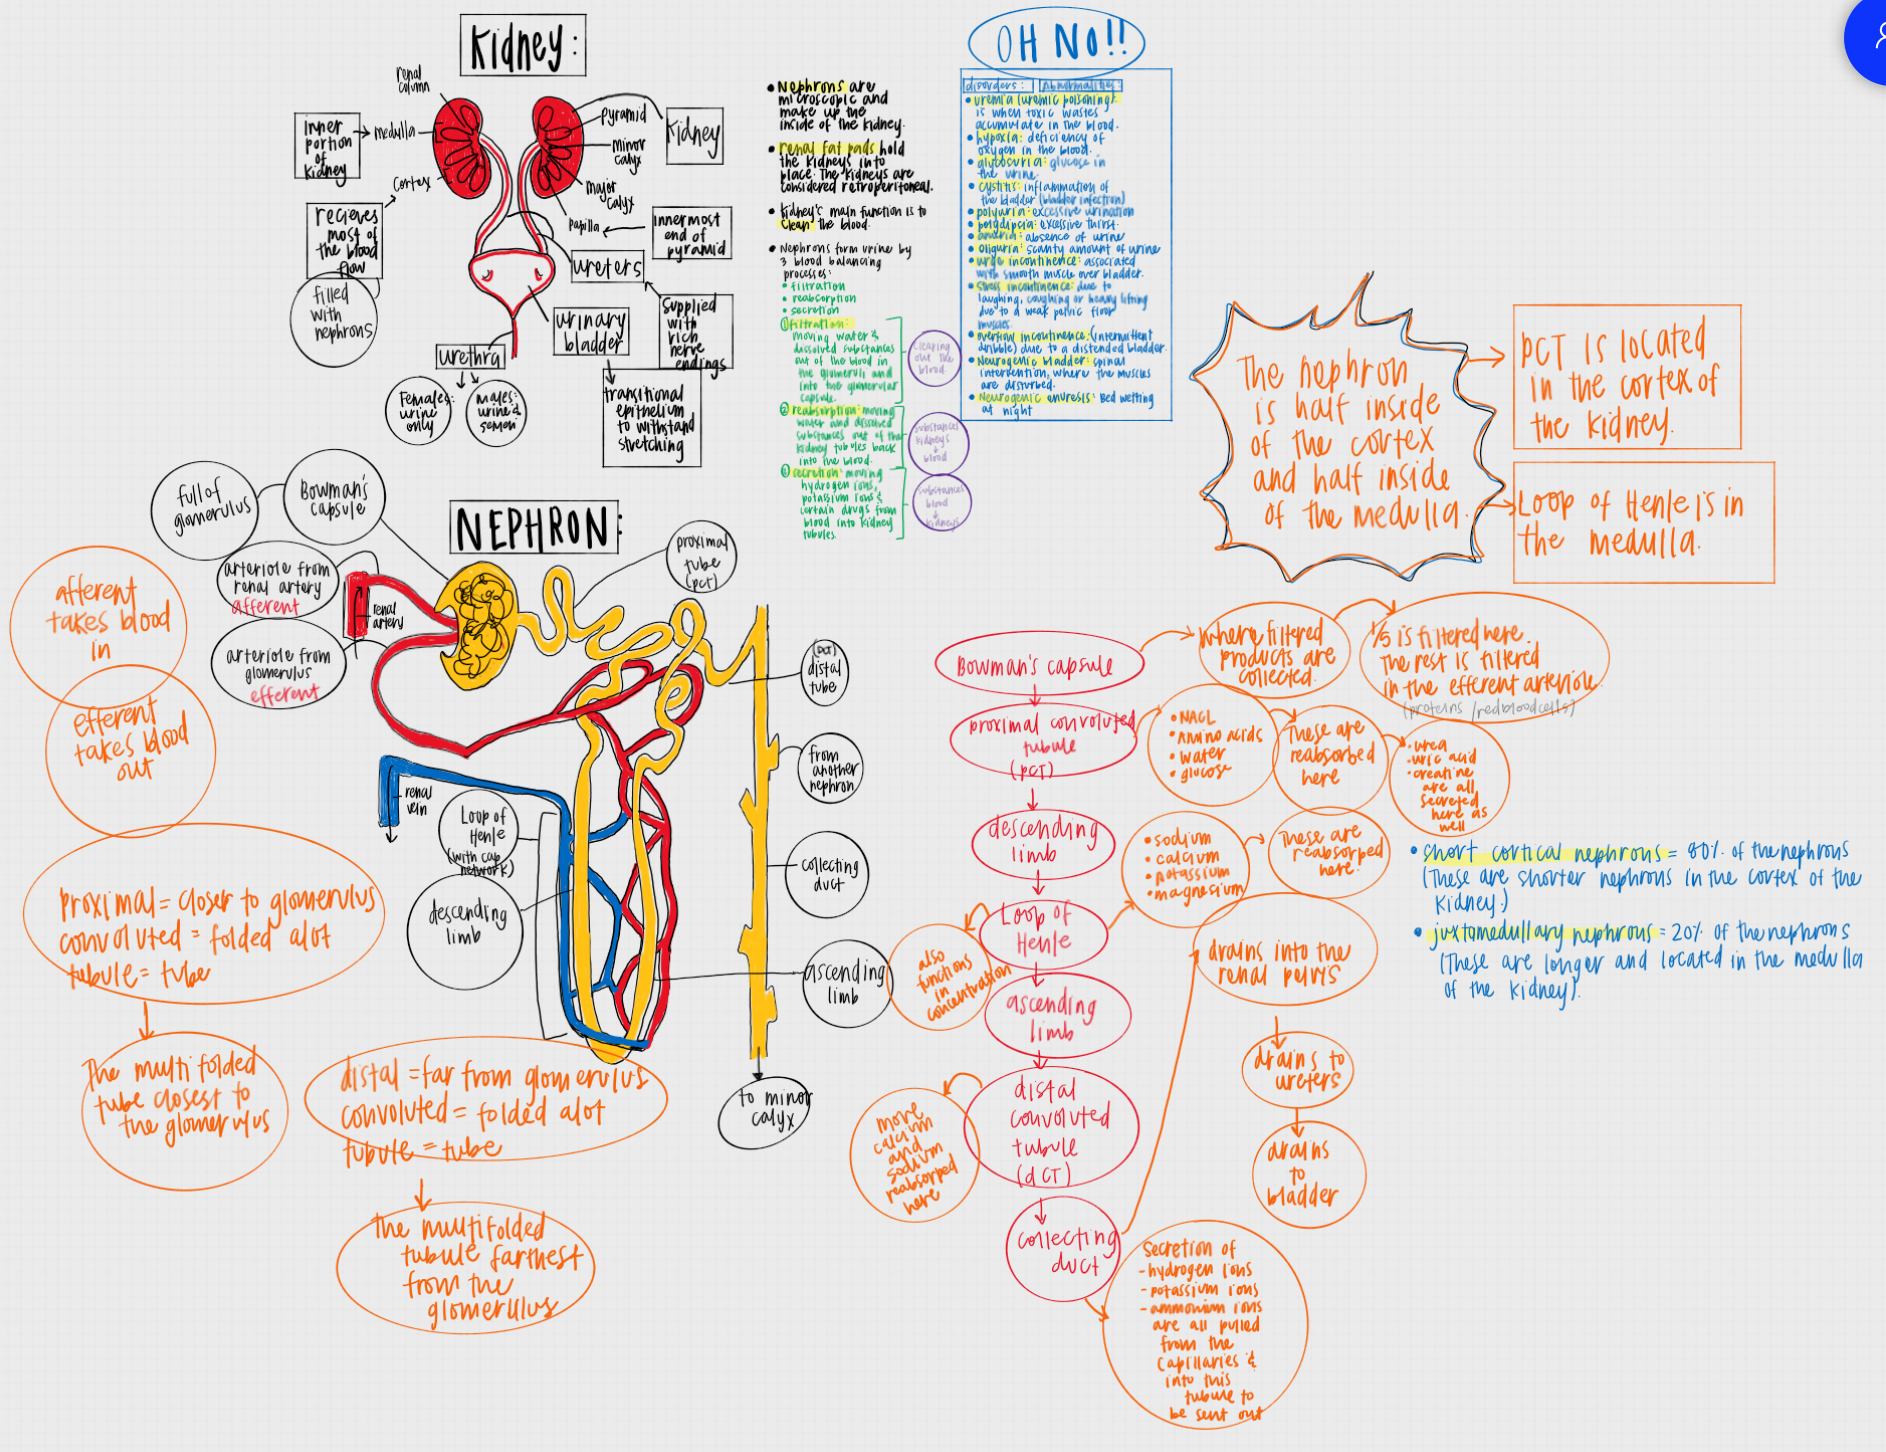 Kidney:
renal
column
inner
portion
of
kidney
medulla
cortex
recieves
most of
the blood
flow
filled
with
nephrons
pyramid
Kidney
minor
calyx
major
calyx
papilla
innermost
end of
pyramid
ureters
supplied
with
rich
nerve
endings
urinary
bladder
transitional
epithelium
to withstand
stretching
urethra
Females:
urine
only
males:
urine &
semen
• Nephrons are
microscopic and
make up the
inside of the kidney.
• renal fat pads hold
the kidneys into
place. The kidneys are
considered retroperitoneal.
• Kidney's main function is to
clean the blood.
• Nephrons form urine by
3 blood balancing
processes:
• filtration
• reabsorption
• secretion
① filtration:
moving water &
dissolved substances
out of the blood in
the glomeruli and
into the glomerular
capsule.
② reabsorption: moving
water and dissolved
substances out of the
kidney tubules back
into the blood.
③ secretion: moving
hydrogen ions,
potassium ions &
certain drugs from
blood into kidney
tubules.
cleaning
out the
blood.
substances
kidneys
↓
blood
substances
blood
↓
kidneys
OH NO!!
disorders: Abnormalities:
• uremia (uremic poisoning):
is when toxic wastes
accumulate in the blood.
• hypoxia: deficiency of
oxygen in the blood.
• glycosuria: glucose in
the urine.
• cystitis: inflammation of
the bladder (bladder infection)
• polyuria: excessive urination
• polydipsia: excessive thirst.
• anuria: absence of urine
• oliguria: scanty amount of urine
• urge incontinence: associated
with smooth muscle over bladder.
• stress incontinence: due to
laughing, coughing or heavy lifting
due to a weak pelvic floor
muscles.
• overflow incontinence: (intermittent
dribble) due to a distended bladder.
• Neurogenic bladder: spinal
intervention, where the muscles
are disturbed.
• Neurogenic enuresis: Bed wetting
at night
The nephron
is half inside
of the cortex
and half inside
of the medulla.
PCT is located
in the cortex of
the kidney.
Loop of Henle is in
the medulla.
NEPHRON:
full of
glomerulus
Bowman's
capsule
arteriole from
renal artery
afferent
arteriole from
glomerulus
efferent
renal
artery
proximal
tube
(pct)
(DCT)
distal
tube
from
another
nephron
collecting
duct
ascending
limb
to minor
calyx
renal
vein
Loop of
Henle
(with cap
network)
descending
limb
afferent
takes blood
in
efferent
takes blood
out
proximal = closer to glomerulus
convoluted = folded alot
tubule = tube
The multifolded
tube closest to
the glomerulus
distal = far from glomerulus
convoluted = folded alot
tubule = tube
the multifolded
tubule farthest
from the
glomerulus
Bowman's capsule
where filtered
products are
collected.
1/5 is filtered here.
The rest is filtered
in the efferent arteriole.
(proteins / red blood cells)
proximal convoluted
tubule
(pct)
• NACL
• Amino acids
• water
• glucose
These are
reabsorbed
here
• urea
• uric acid
• creatine
are all
secreted
here as
well
descending
limb
• sodium
• calcium
• potassium
• magnesium
These are
reabsorped
here.
Loop of
Henle
also
functions
in
concentration
ascending
limb
distal
convoluted
tubule
(dCT)
more
calcium
and
sodium
reabsorped
here
collecting
duct
drains into the
renal pelvis
drains to
ureters
drains
to
bladder
Secretion of
- hydrogen ions
- potassium ions
- ammonium ions
are all pulled
from the
capillaries &
into this
tubule to
be sent out
• short cortical nephrons = 80% of the nephrons
(These are shorter nephrons in the cortex of the
kidney.)
• juxtamedullary nephrons = 20% of the nephrons
(These are longer and located in the medulla
of the kidney).